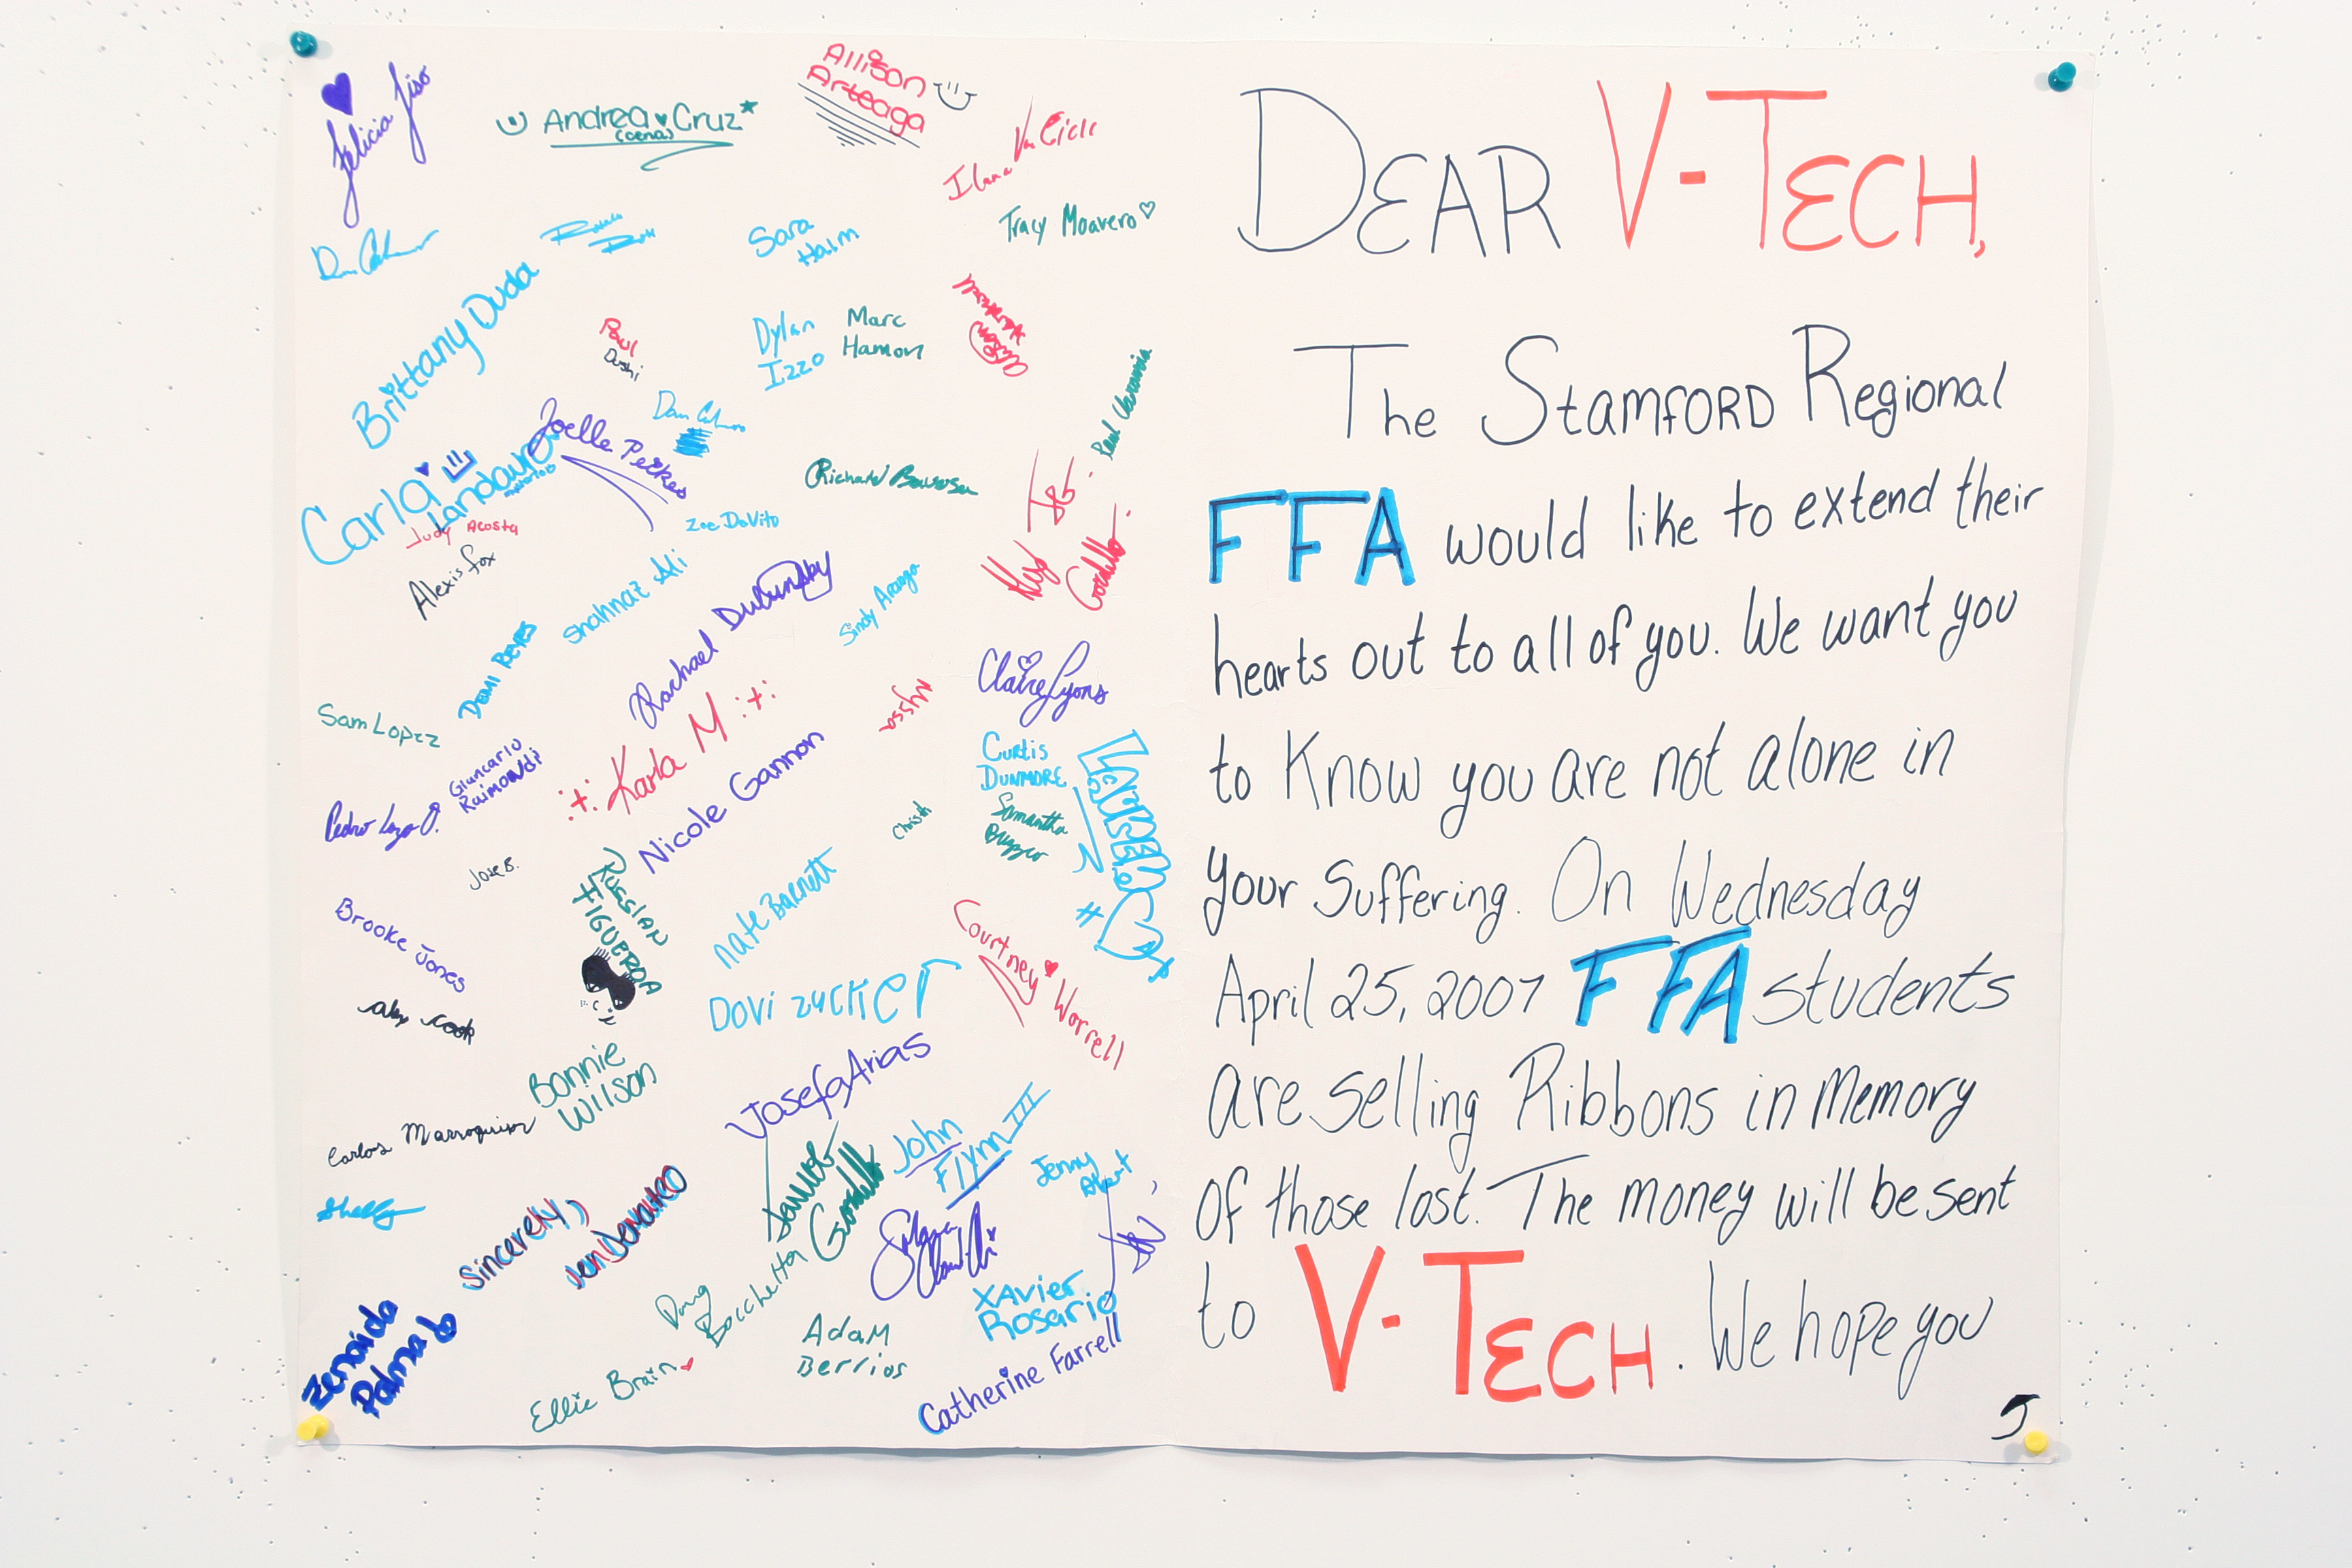 Felicia Fiso
Andrea Cruz
(cena)
Allison
Arteaga
Ilana
Tracy Moavero
Sara
Haim
Brittany Duda
Paul
Dylan
Izzo
Marc
Hamon
Joelle
Carla
Landauro
Judy Acosta
Alexis Fox
Zoe DeVito
Richard
Shahnaz Ali
Demi Reyes
Rachael Dubinsky
Sindy Arango
Claire Lyons
Sam Lopez
Giancarlo
Raimondi
Karla M
Nyssa
Nicole Gannon
Curtis
Dunmore
Samantha
Pedro
Jose B.
Brooke Jones
Figueroa
Nate Barnett
Courtney Worrell
Dovi Zucker
Alex Cook
Bonnie
Wilson
Josefa Arias
Carlos Marroquin
John
Flynn III
Jenny
Shelly
Sincerely,
Jen
Samuel
Gordillo
Doug
Bocchetta
Xavier
Rosario
Zenaida
Palma
Adam
Berrios
Ellie Brain
Catherine Farrell
DEAR V-TECH,
The Stamford Regional
FFA would like to extend their
hearts out to all of you. We want you
to Know you are not alone in
your Suffering. On Wednesday
April 25, 2007 FFA students
are selling Ribbons in Memory
of those lost. The money will be sent
to V-TECH. We hope you